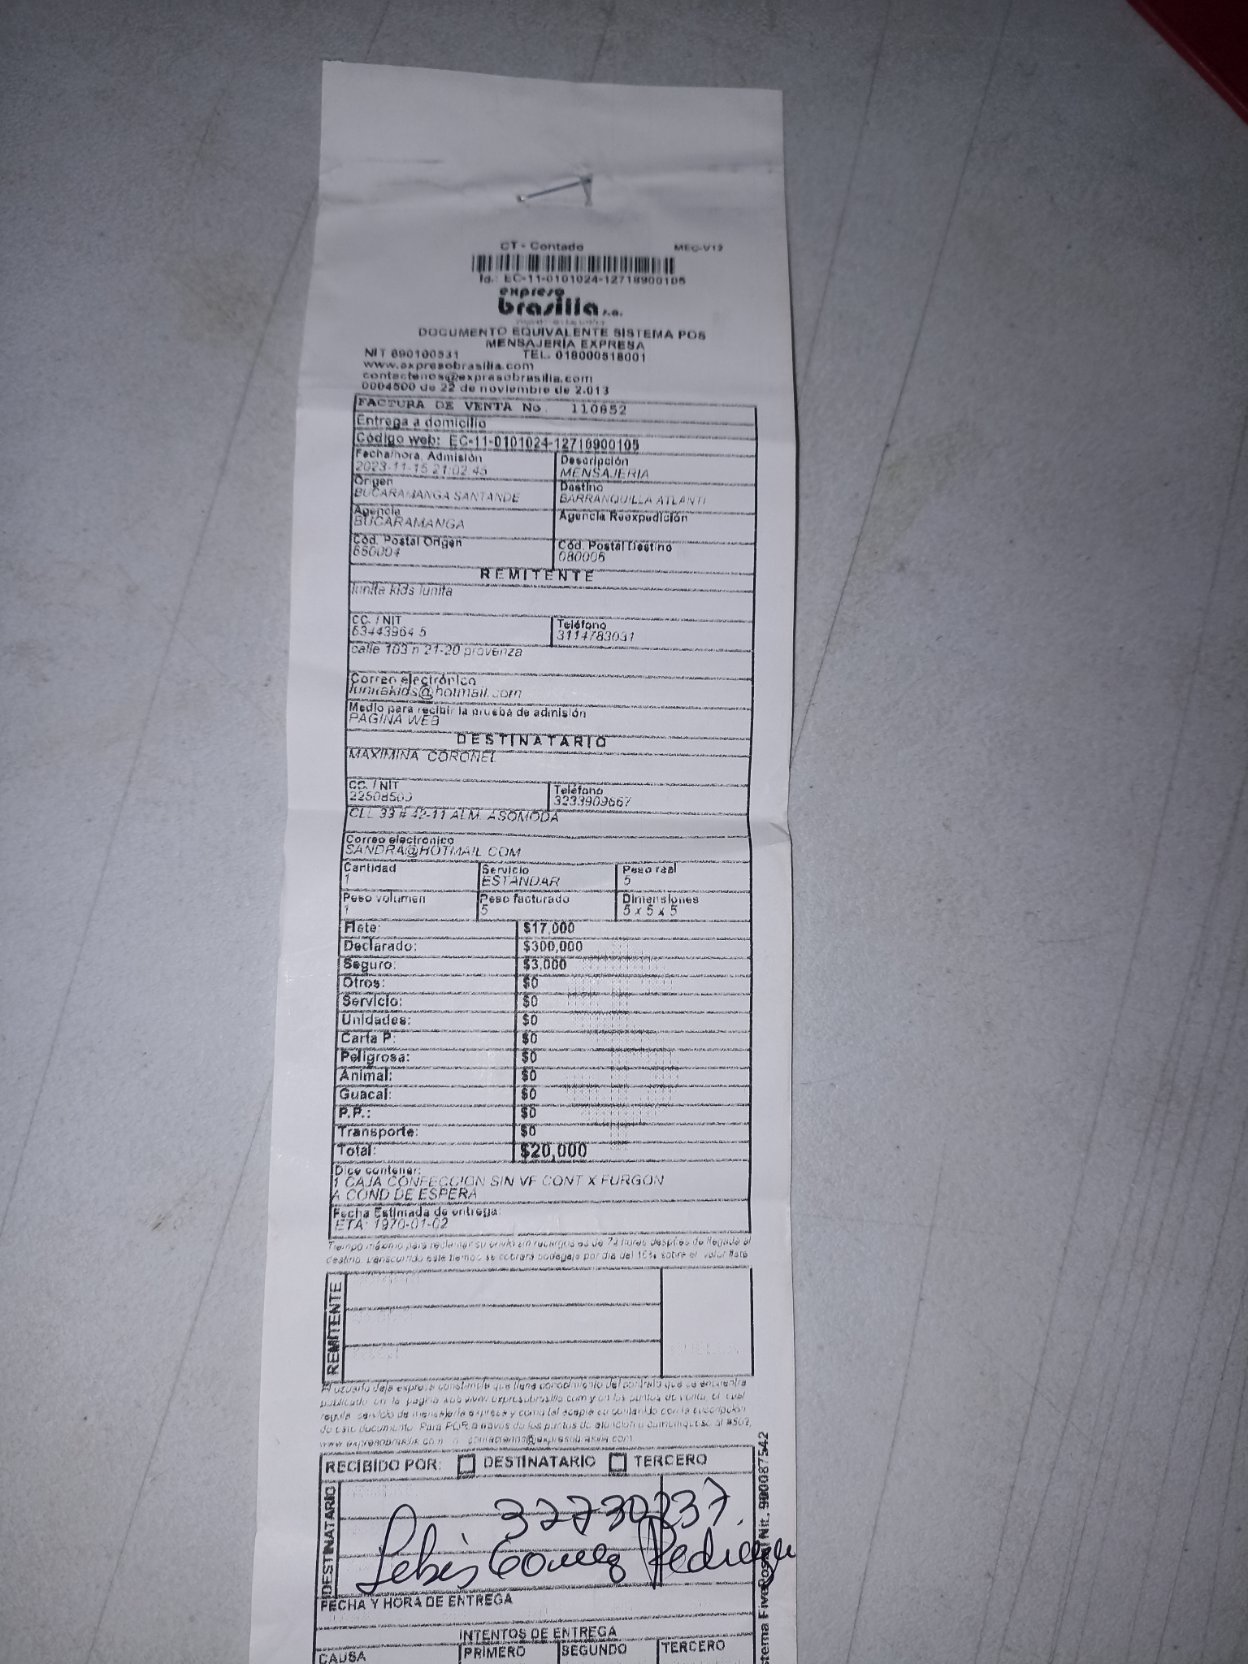 CT - Contado MEC-V12
Id.: EC-11-0101024-12718900105
expreso
brasilia s.a.
DOCUMENTO EQUIVALENTE SISTEMA POS
MENSAJERÍA EXPRESA
NIT 890100531 TEL. 018000518001
www.expresobrasilia.com
contactenos@expresobrasilia.com
0004500 de 22 de noviembre de 2.013
FACTURA DE VENTA No. 110852
Entrega a domicilio
Código web: EC-11-0101024-12718900105
Fecha/hora. Admisión Descripción
2023-11-15 21:02:45 MENSAJERIA
Origen Destino
BUCARAMANGA SANTANDE BARRANQUILLA ATLANTI
Agencia Agencia Reexpedición
BUCARAMANGA
Cód. Postal Origen Cód. Postal Destino
680004 080006
REMITENTE
lunita kids lunita
CC. / NIT Teléfono
63443964-5 3114783031
calle 103 n 21-20 provenza
Correo electrónico
lunitakids@hotmail.com
Medio para recibir la prueba de admisión
PAGINA WEB
DESTINATARIO
MAXIMINA CORONEL
CC. / NIT Teléfono
22508503 3233909667
CLL 33 # 42-11 ALM. ASOMODA
Correo electrónico
SANDRA@HOTMAIL.COM
Cantidad Servicio Peso real
1 ESTANDAR 5
Peso volumen Peso facturado Dimensiones
1 5 5 x 5 x 5
Flete: $17,000
Declarado: $300,000
Seguro: $3,000
Otros: $0
Servicio: $0
Unidades: $0
Carta P: $0
Peligrosa: $0
Animal: $0
Guacal: $0
P.P.: $0
Transporte: $0
Total: $20,000
Dice contener:
1 CAJA CONFECCION SIN VF CONT X FURGON
A COND DE ESPERA
Fecha Estimada de entrega:
ETA: 1970-01-02
Tiempo máximo para reclamar su envío sin recargos es de 72 horas después de llegada al
destino, transcurrido este tiempo se cobrará bodegaje por día del 10% sobre el valor flete
REMITENTE
El usuario deja expresa constancia que tiene conocimiento del contrato que se encuentra
publicado en la pagina web www.expresobrasilia.com y en los puntos de venta, el cual
regula servicio de mensajería expresa y como tal acepta su contenido con la suscripción
de este documento. Para PQR a través de los puntos de atención o comuníquese al #502,
RECIBIDO POR: DESTINATARIO TERCERO
DESTINATARIO
32730237.
Lebis Gomez Pedroza
FECHA Y HORA DE ENTREGA
INTENTOS DE ENTREGA
CAUSA PRIMERO SEGUNDO TERCERO
stema FivePostal Nit. 900087542